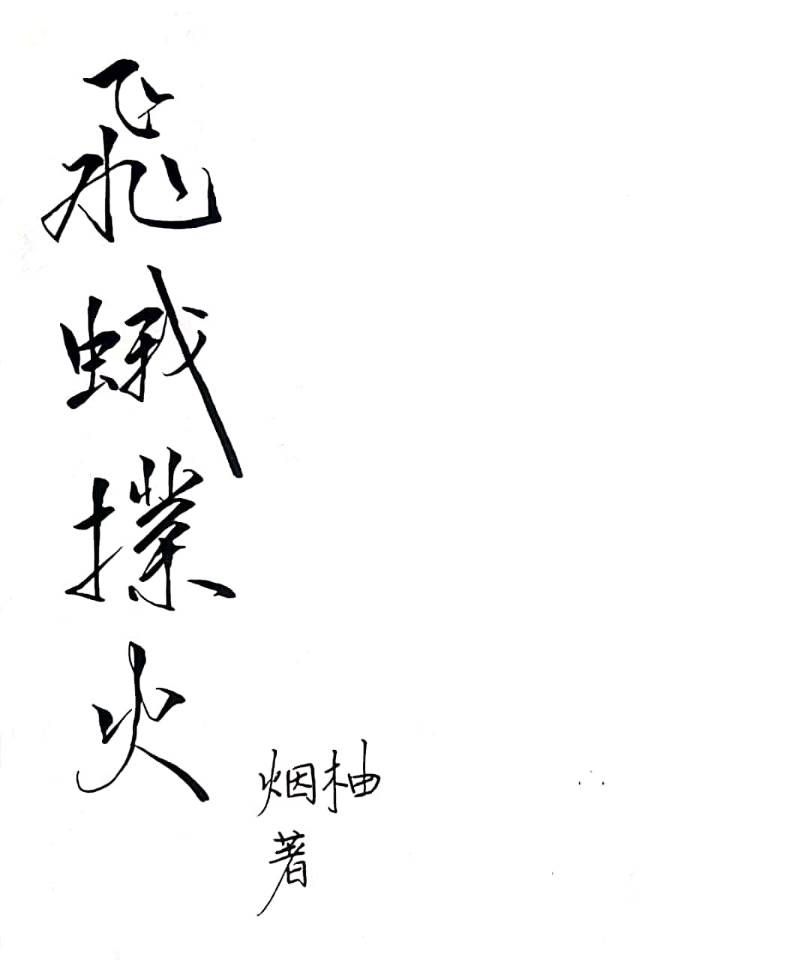 飛蛾撲火
烟柚
著